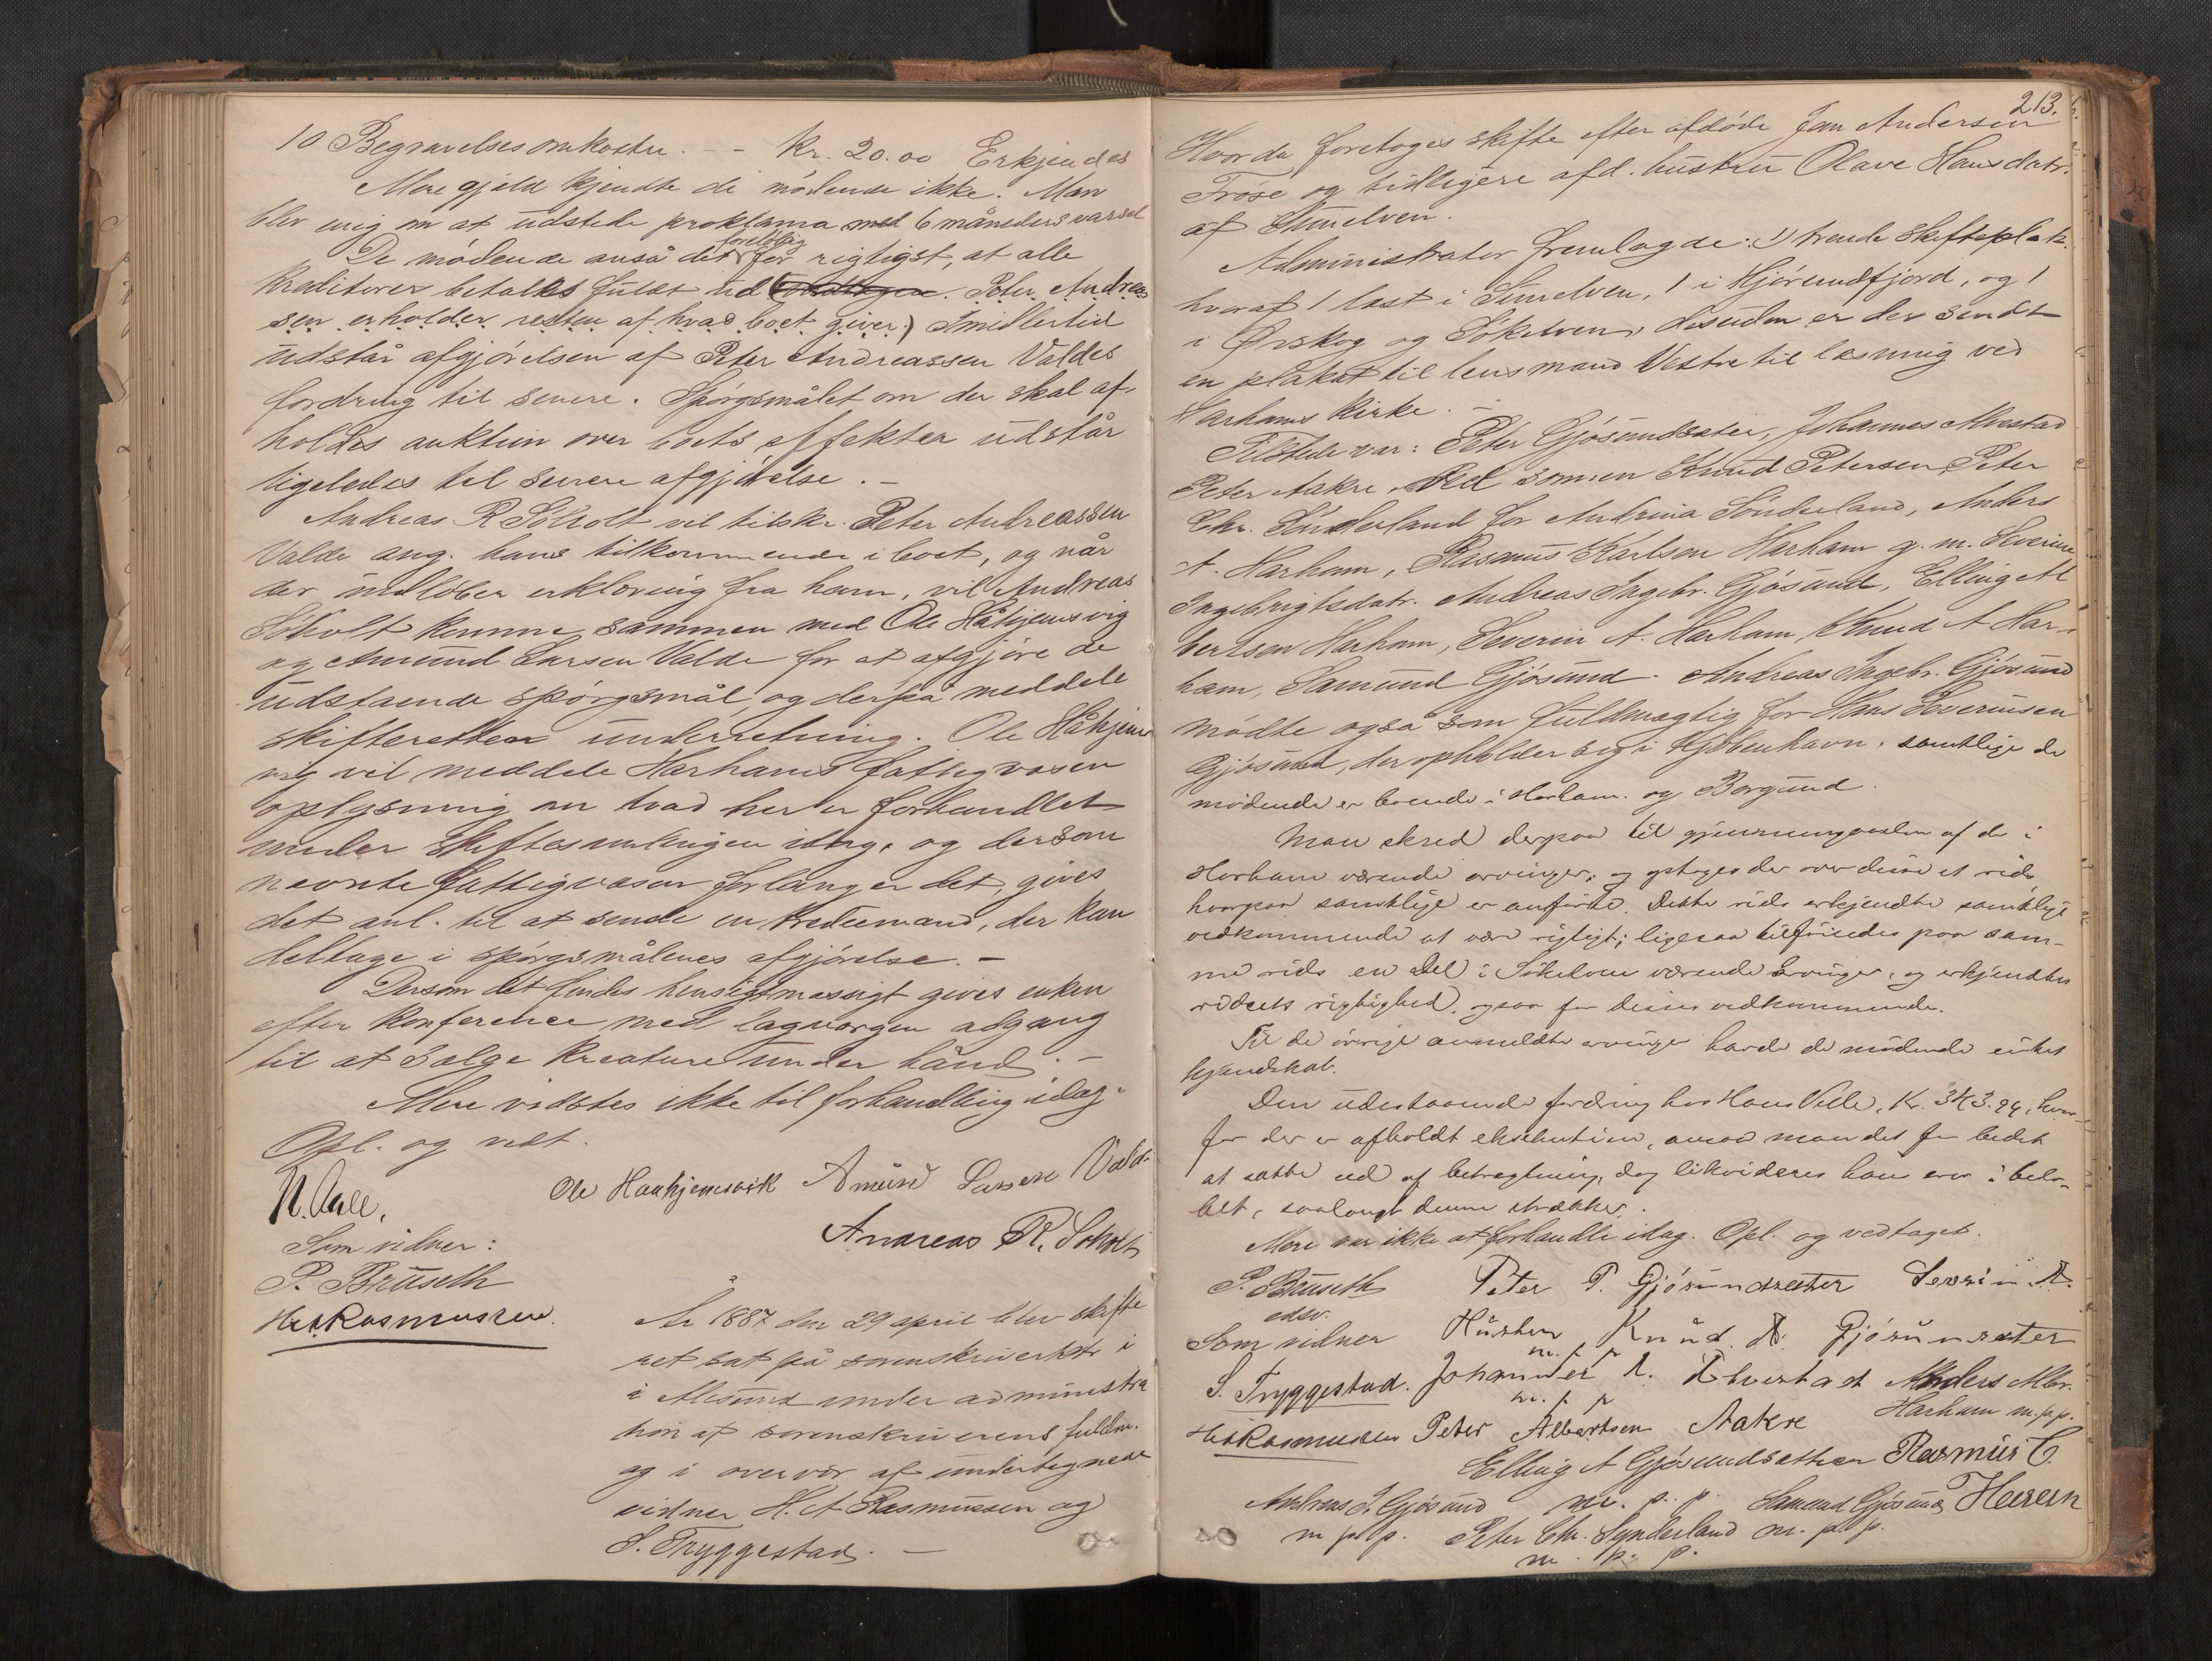 10 Begravelsesomkostn. - - Kr. 20.00 Erkjendes
Mere gjeld kjendte de mödende ikke. Man
blev enig om at udstede proklama med 6 måneders varsel
De mödende anså det foreløbig for rigtigst, at alle
Kreditorer betales fuldt ud. Peter Andreas
sen erholder resten af hvad boet giver.) Imidlertid
udstår afgjörelsen af Peter Andreassen Valdes
fordring til senere. Spörgsmålet om der skal af-
holdes auktion over boets effekter udstår
ligeledes til senere afgjörelse. -
Andreas R Söholt vil tilskr. Peter Andreassen
Valde ang. hans tilkommende i boet, og når
der indlöber erklæring fra ham, vil Andreas
Söholt komme sammen med Ole Håkjensvig
og Amund Larsen Valde for at afgjöre de
udstaaende spörgsmål, og derpå meddele
skifteretten underretning. Ole Håkjens
vig vil meddele Harhams fattigvæsen
oplysning om hvad her er forhandlet
under skiftesamlingen idag, og dersom
nævnte fattigvæsen forlanger det, gives
det anl. til at sende en trediemand, der kan
deltage i spörgsmålenes afgjörelse. -
Dersom det findes hensigtmæssigt gives enken
efter konference med lagværgen adgang
til at sælge kreature under hånd. -
Mere vidstes ikke til forhandling idag.
Opl. og vedt.
N. Aale. Ole Haakjensvik Amund Larsen Valde
Andreas R. Soholt
Som vidner:
P. Bruseth
H. A. Rasmussen.
År 1887 den 29 april blev skifte
ret sat på sorenskriverkstr i
i Alesund under administra
tion af sorenskriverens fuldm.
og i overvær af undertegnede
vidner H. A Rasmussen og
S. Tryggestad. -
213.
Hvorda foretoges skifte efter afdöde Jan Andersen
Fröse og tidligere afd. hustru Olave Hansdatr.
af Sunelven.
Administrator fremlagde: 1) trende skifteplak.
hvoraf 1 læst i Sunelven, 1 i Hjörundfjord, og 1
i Ørskog og Sökelven, desuden er der sendt
en plakat til lensmand Vestre til læsning ved
Harhams kirke. -
Tilstede var: Peter Gjösundsæter, Johannes Alvestad
Peter Aakre ved sönnen Knud Petersen, Peter
Chr. Sönderland for Andrina Sönderland, Anders
A. Harham, Rasmus Karlsen Harham g. m. Severine
Ingebrigtsdatr. Andreas Ingebr. Gjösund, Elling Al
bertsen Harham, Severin A. Harham, Knud A Har-
ham, Samund Gjösund. Andreas Ingebr. Gjösund
mödte også som fuldmægtig for Hans Severinsen
Gjösund, der opholder sig i Kjöbenhavn, samtlige de
mödende er boende i Harham og Borgund.
Man skred derpaa til gjennemgaaelse af de i
Harham værende arvinger, og optoges der over disse et rids
hvorpaa samtlige er anförte. Dette rids erkjendte samtlige
vedkommende at være rigtigt; ligesaa tilföiedes paa sam-
me rids en del i Sökelven værende arvinger, og erkjendtes
ridsets rigtighed, ogsaa for disses vedkommende.
Til de övrige anmeldte arvinger havde de mödende intet
kjendskab.
Den udestaaende fordring hos Hans Velle, Kr. 343.94, hvor-
for der er afholdt exekution, ansaa man det for bedst
at sætte ud af betragtning, dog likvideres han arv i belö-
bet, saalangt denne strækker.
Mere var ikke at forhandle idag. Opl. og vedtaget.
P. Bruseth Peter P. Gjösundsæter Severin A.
edsv.
Som vidner Knud A. Gjösunsæter
m. p. p.
S. Tryggestad. Johannes A. Alvestad Anders Alb.
m. p. p Harham m.p.p.
H. A. Rasmussen Peter Albertsen Aakre
Elling A Gjösundsætter Rasmus C.
Andreas I. Gjösund m. p. p. Samund Gjösund
m p p. Peter Chr. Synderland m. p. p.
m. p. p.